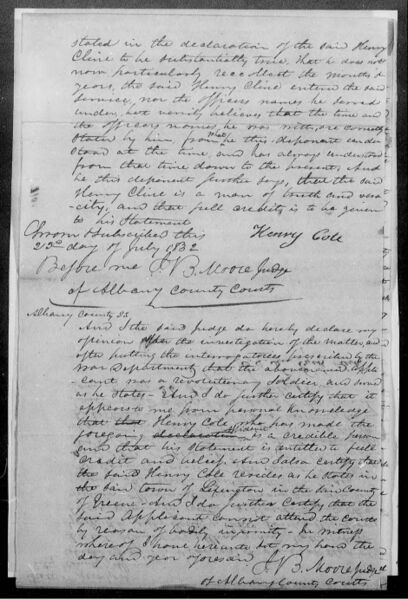 stated in the declaration of the said Henry
Cline to be substantially true, that he does not
now particularly recollect the months &
years, the said Henry Cline entered the said
service, nor the officers names he served
under, but verily believes that the time and
the officers names he was with, are correctly
stated by him from what he this deponent under
stood at the time, and has always understood
from that time down to the present, And
he, this deponent further says, that the said
Henry Cline is a man of truth and vera-
city, and that full credit is to be given
to his Statement
Sworn & subscribed this
day of July 1832 Henry Cole
Before me J. B. Moore Judge
of Albany County Courts
Albany County Ss.
And I the said Judge do hereby declare my
opinion after the investigation of the matter, and
after putting the interrogatories prescribed by the
War Department, that the above named appli-
cant was a revolutionary Soldier and served
as he States - And I do further certify that it
appears to me from personal knowledge
that Henry Cole who has made the
foregoing declaration is a credible person
and that his statement is entitled to full
credit and belief. And I also certify that
the said Henry Cole resides as he states in
the said town of Lexington in the said County
of Greene - And I do further Certify that the
said Applicant cannot attend the courts
by reason of bodily infirmity - In witness
whereof I have hereunto set my hand the
day and year aforesaid J. B. Moore Judge
of Albany County Courts